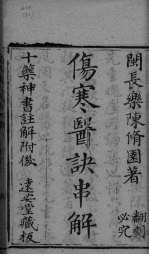 閩長樂陳脩園著
翻刻必究
傷寒醫訣串解
十藥神書註解附後
達安堂藏板